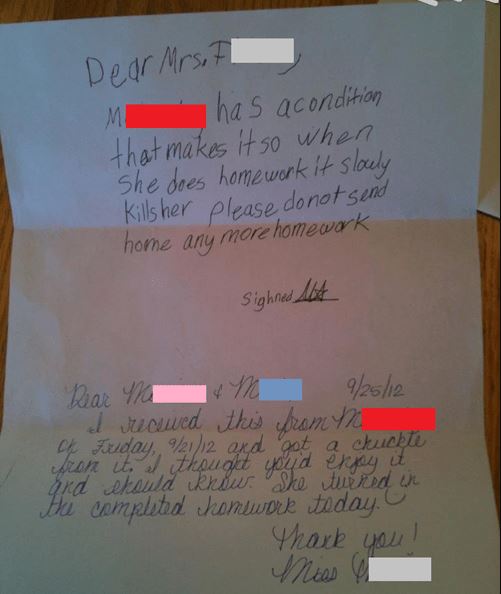 Dear Mrs. F
M has a condition
that makes it so when
She does homework it slowly
Kills her please do not send
home any more homework
Sighned
Dear M & M 9/25/12
I received this from M
on Friday, 9/21/12 and got a chuckle
from it. I thought you'd enjoy it
and should know. She turned in
the completed homework today.
Thank you!
Miss